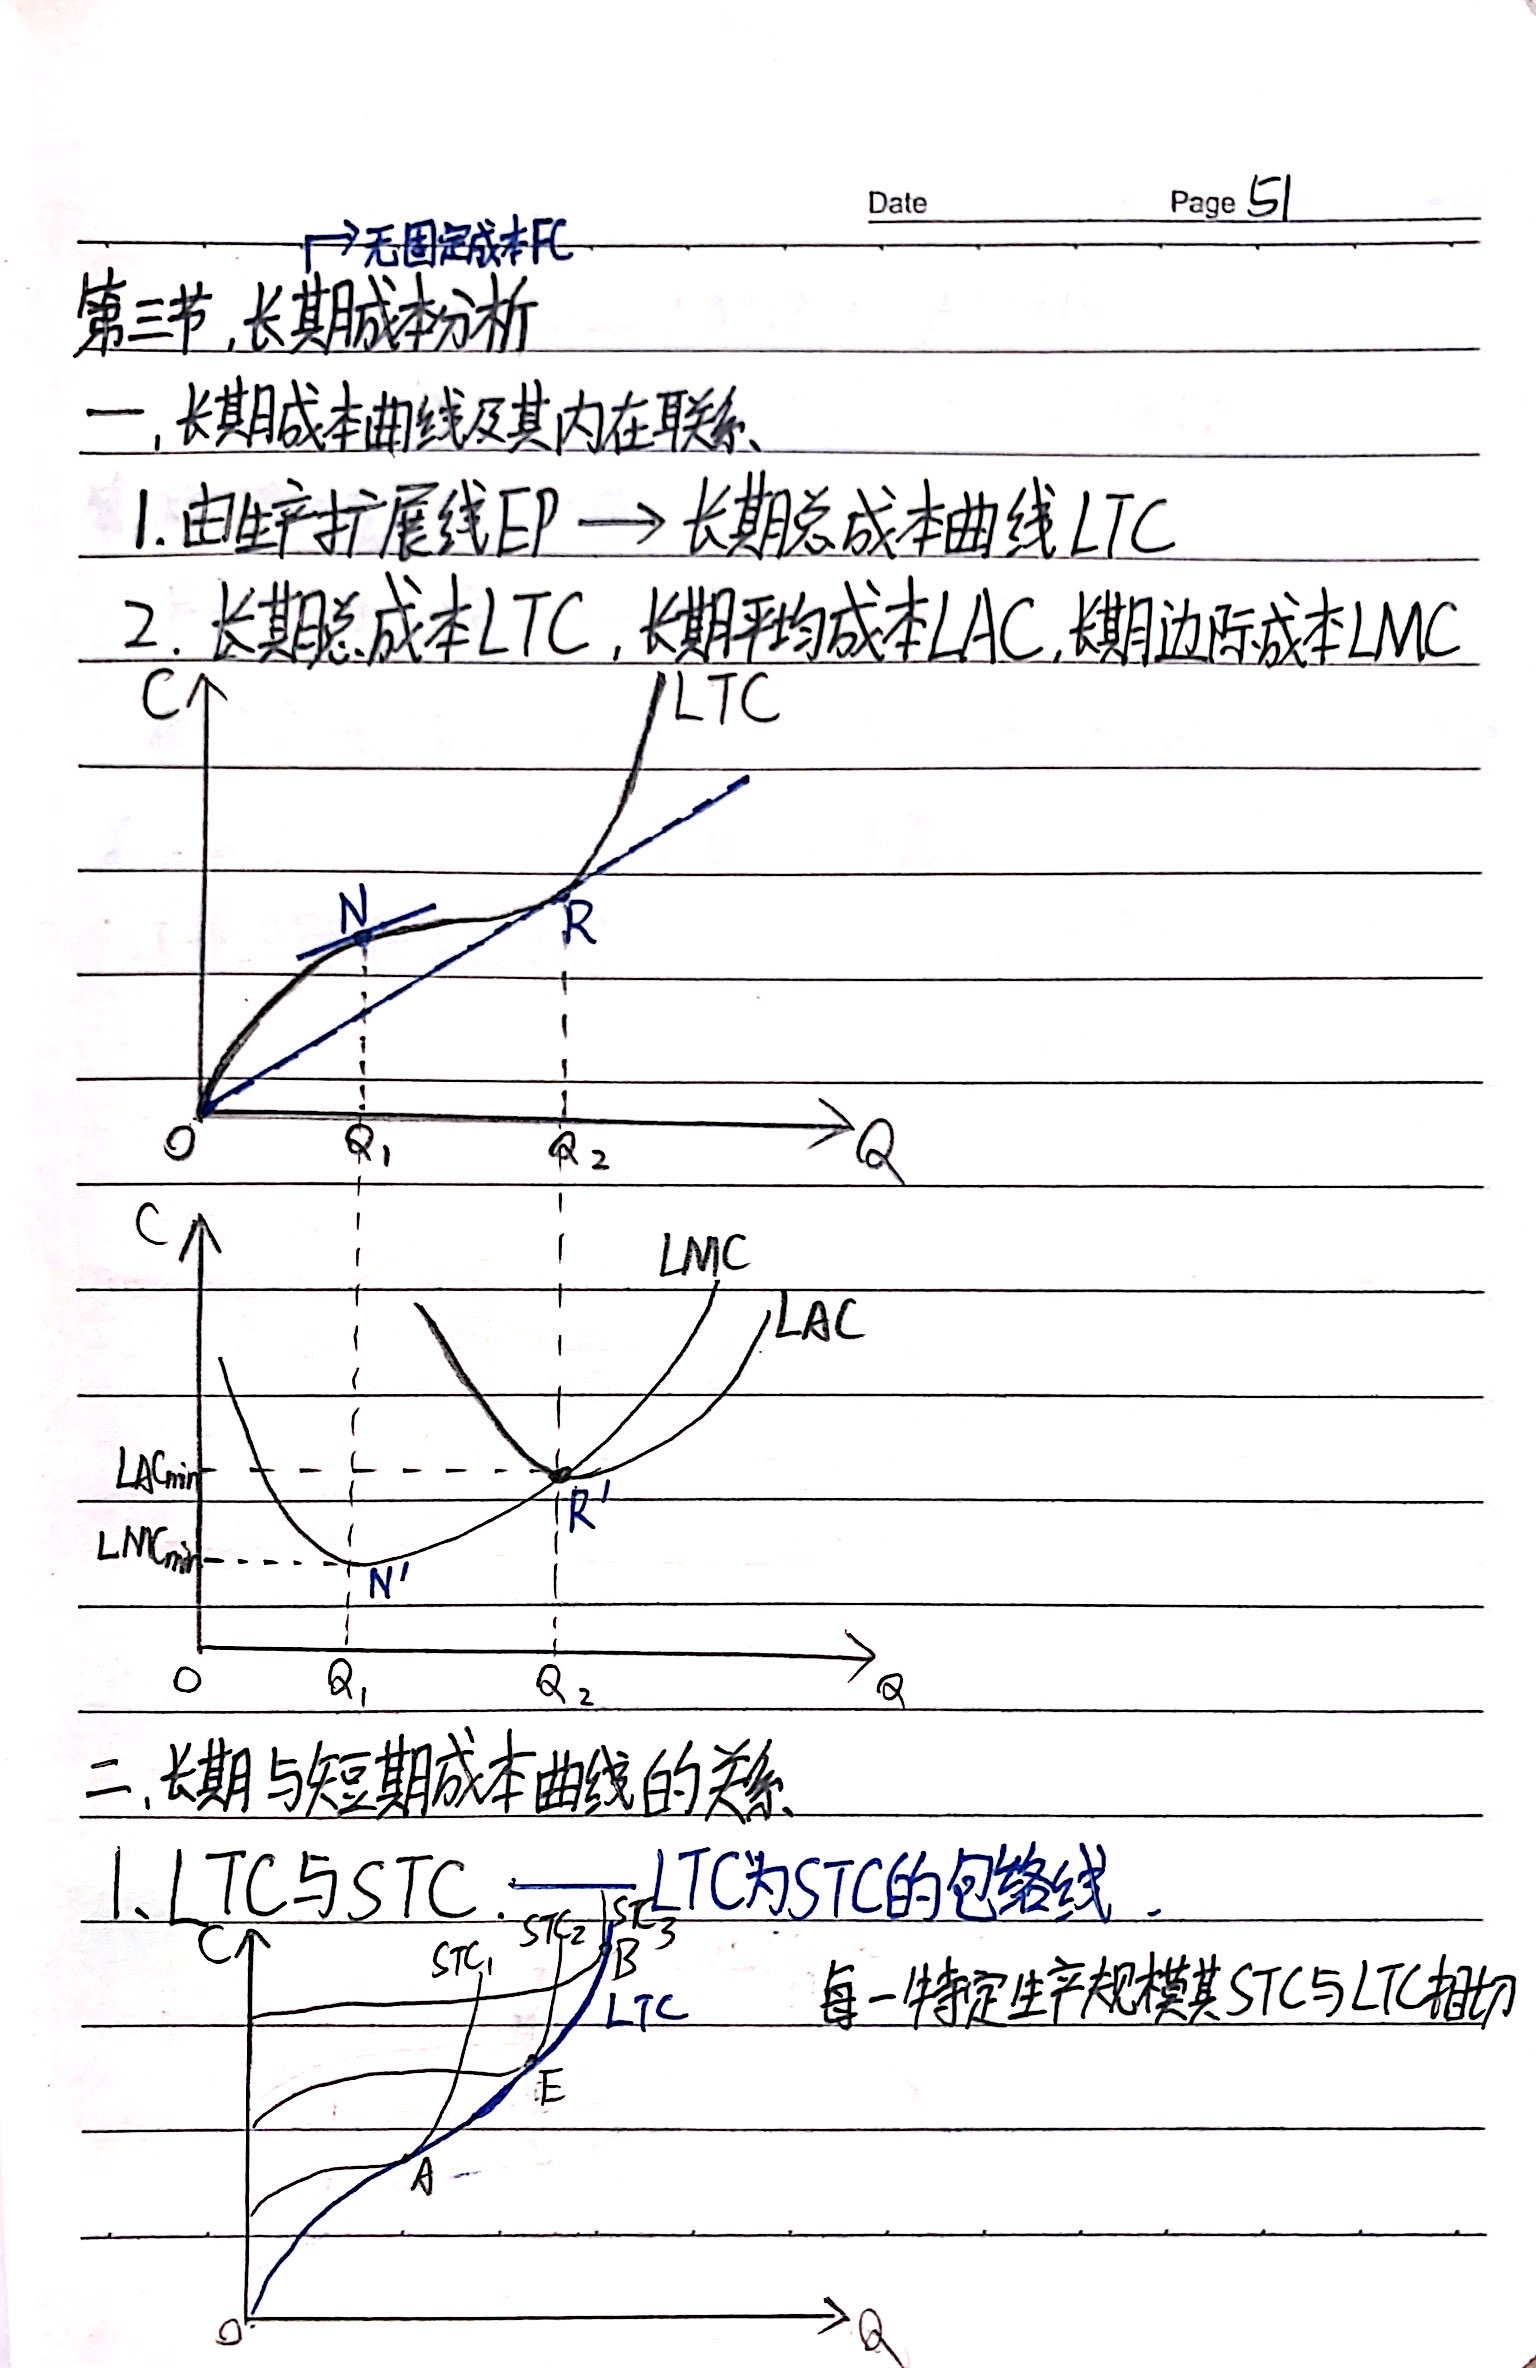 Date Page 51
→无固定成本FC
第三节,长期成本分析
一,长期成本曲线及其内在联系、
1.由生产扩展线EP → 长期总成本曲线LTC
2. 长期总成本LTC,长期平均成本LAC,长期边际成本LMC
C LTC
N
R
O Q₁ Q₂ Q
C LMC
LAC
LACmin
R'
LMCmin
N'
O Q₁ Q₂ Q
二,长期与短期成本曲线的关系、
1、LTC与STC. ——LTC为STC的包络线.
C STC₁ STC₂ STC₃
B
LTC
每一特定生产规模其STC与LTC相切
E
A
O Q